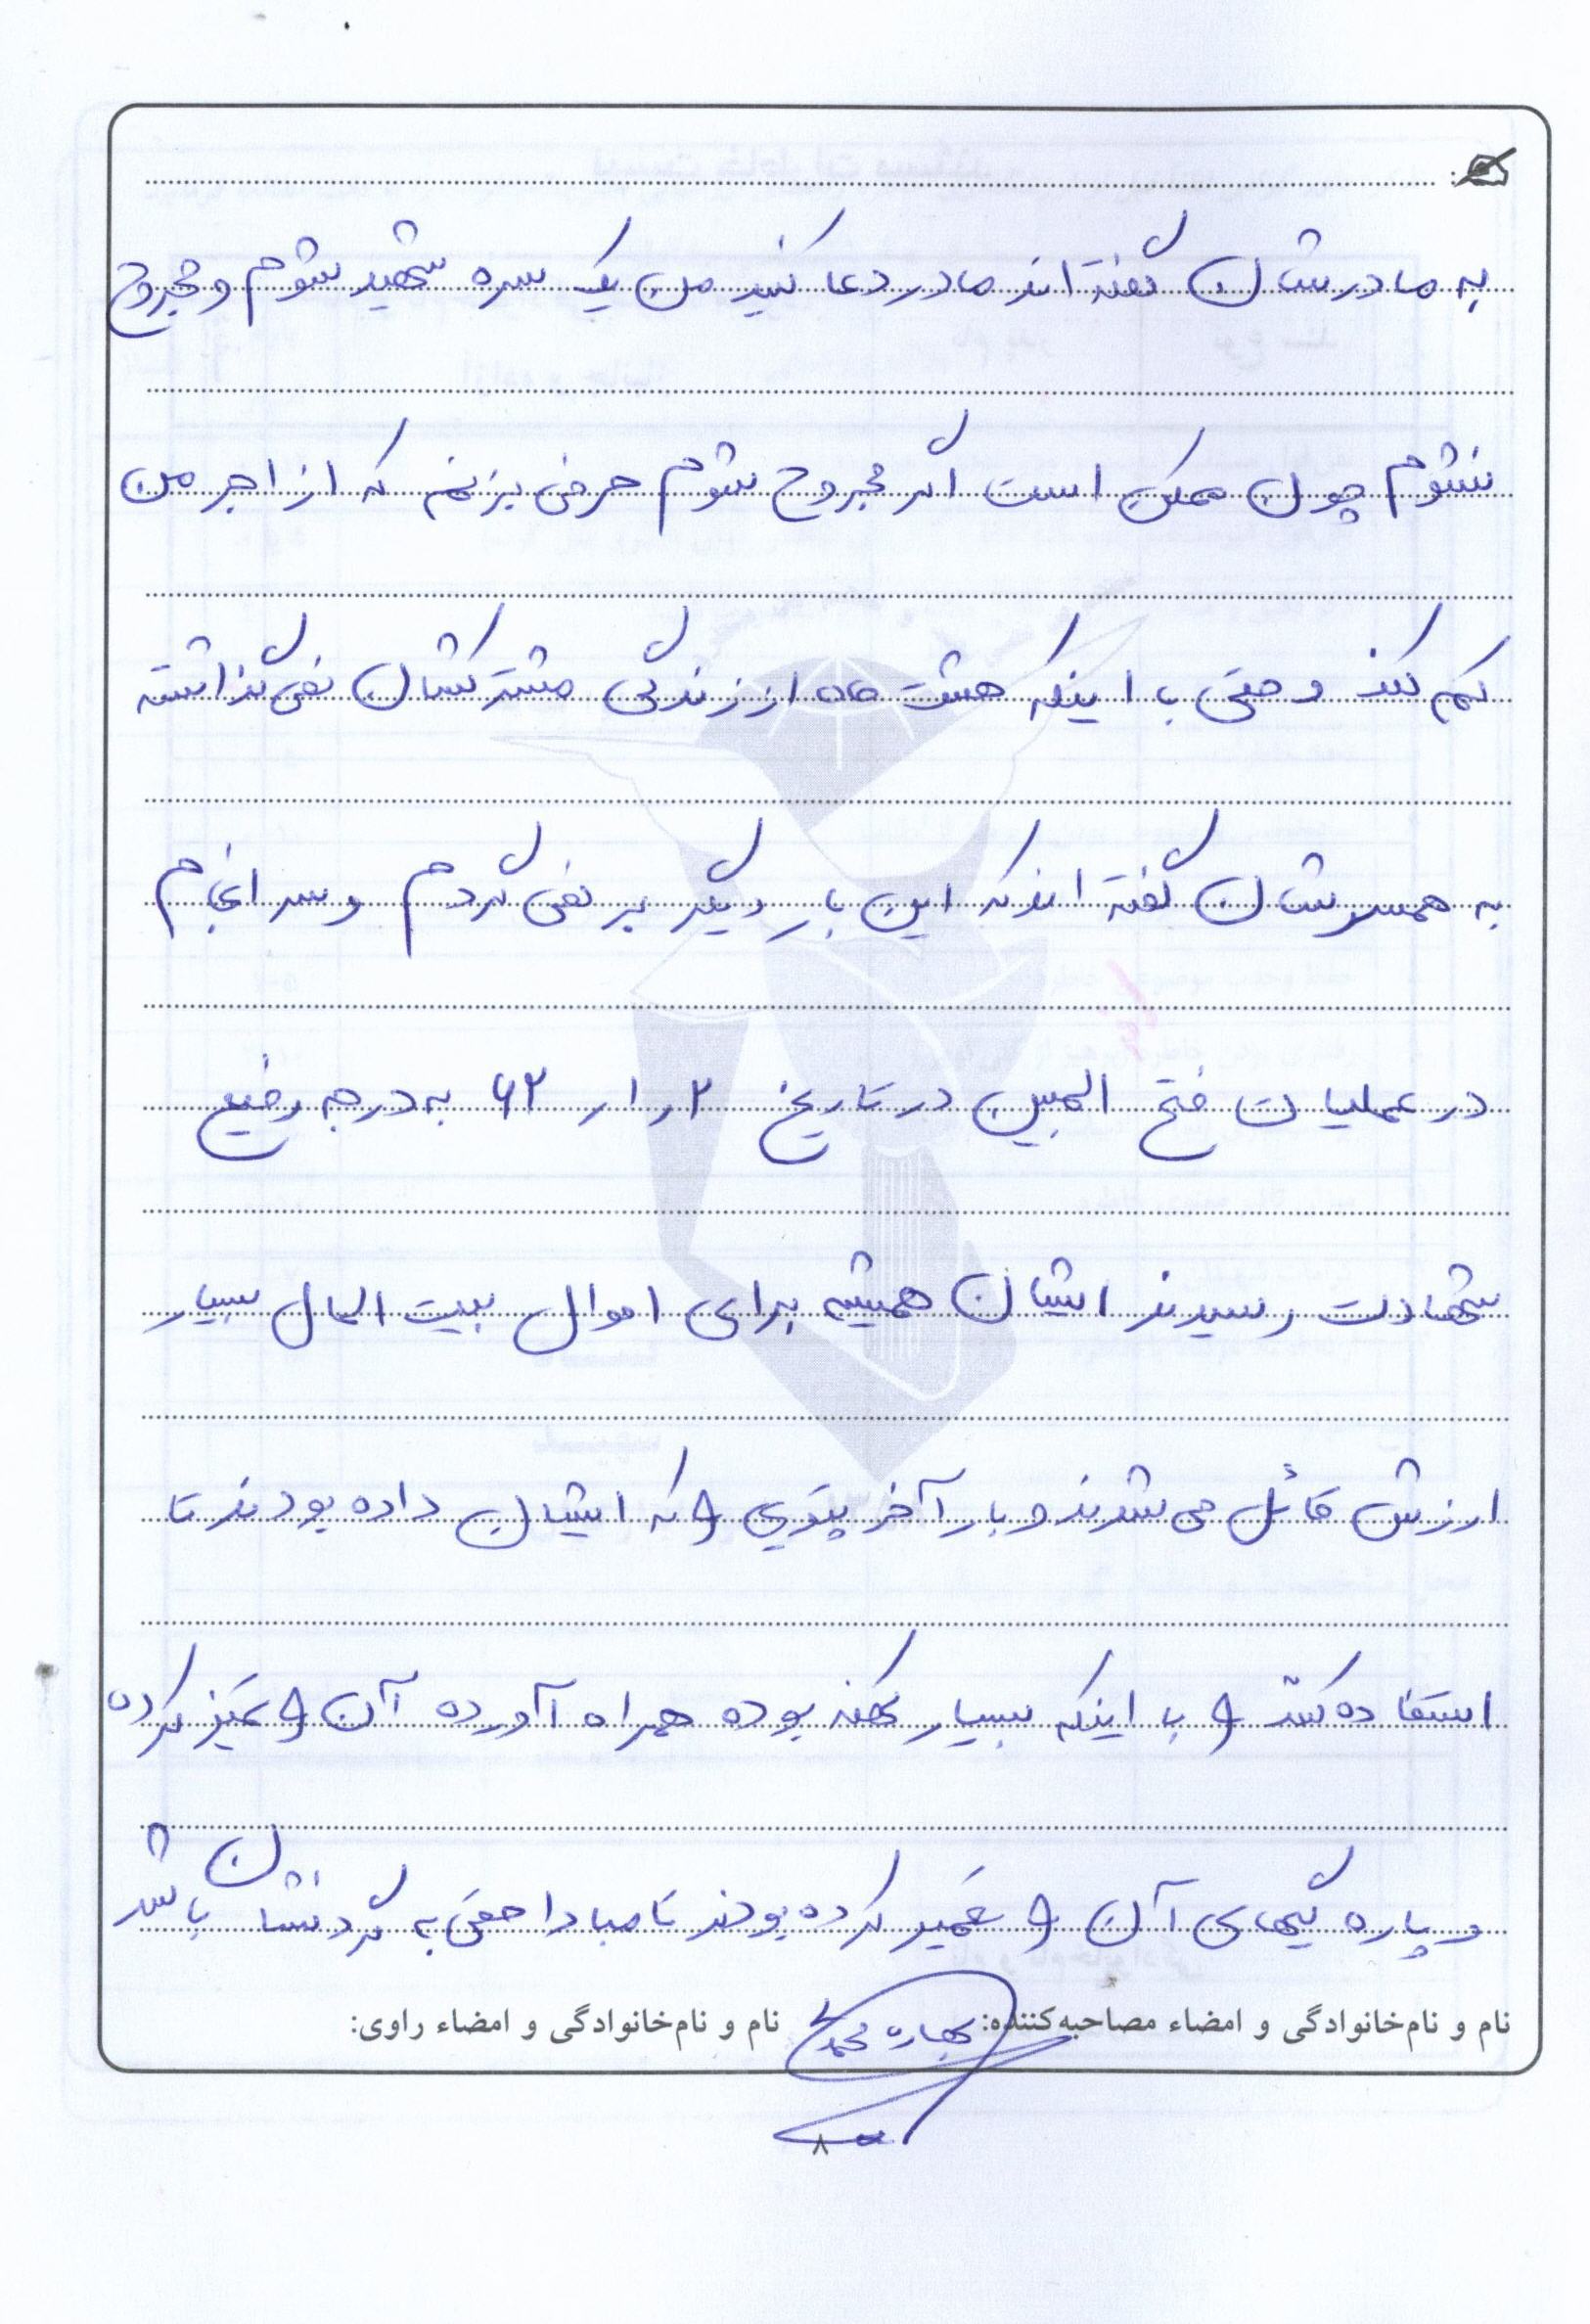 به مادرشان گفته اند مادر دعا کنید من یک سره شهید شوم و مجروح
نشوم چون ممکن است اگر مجروح شوم حرفی بزنم که از اجر من
کم کند و حتی با اینکه هشت ماه از زندگی مشترکشان نمی گذاشته
به همسرشان گفته اند که این بار دیگر بر نمی گردم و سرانجام
در عملیات فتح المبین در تاریخ ۲ ر ۱ ر ۶۲ به درجه رفیع
شهادت رسیدند ایشان همیشه برای اموال بیت المال بسیار
ارزش قائل می شدند و بار آخر پتویی را که ایشان داده بودند تا
استفاده کنند را با اینکه بسیار کهنه بوده همراه آورده آن را تمیز کرده
و پاره گیهای آن را تعمیر کرده بودند تا مبادا حقی به گردنشان باشد
نام و نام‌خانوادگی و امضاء مصاحبه‌کننده: بهاره محمدی نام و نام‌خانوادگی و امضاء راوی:
۸